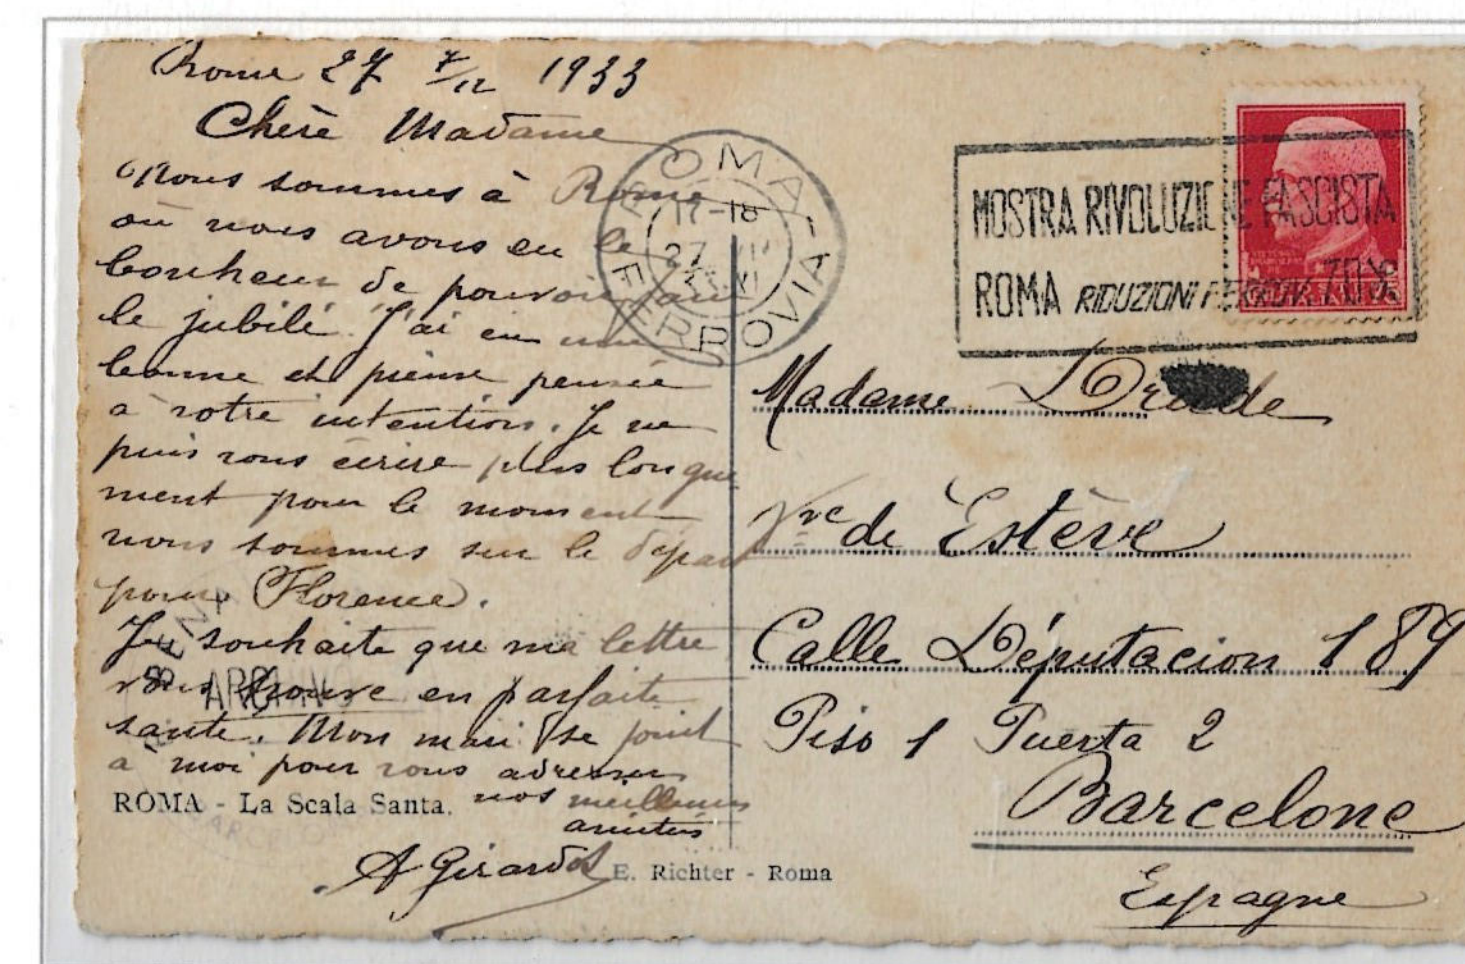 Rome 27 7/12 1933
Chère Madame
Nous sommes à Rome
où nous avons eu le
bonheur de pouvoir faire
le jubilé. J'ai eu une
bonne et pieuse pensée
à votre intention. Je ne
puis vous écrire plus longue
ment pour le moment
nous sommes sur le départ
pour Florence.
Je souhaite que ma lettre
vous trouve en parfaite
santé. Mon mari se joint
à moi pour vous adresser
nos meilleures
amitiés
A Girardot
ROMA - La Scala Santa.
E. Richter - Roma
ROMA - FERROVIA
17-18
27
MOSTRA RIVOLUZIONE FASCISTA
ROMA RIDUZIONI FERROV. 70%
Madame
Vve de Estève
Calle Députacion 189
Piso 1 Puerta 2
Barcelone
Espagne